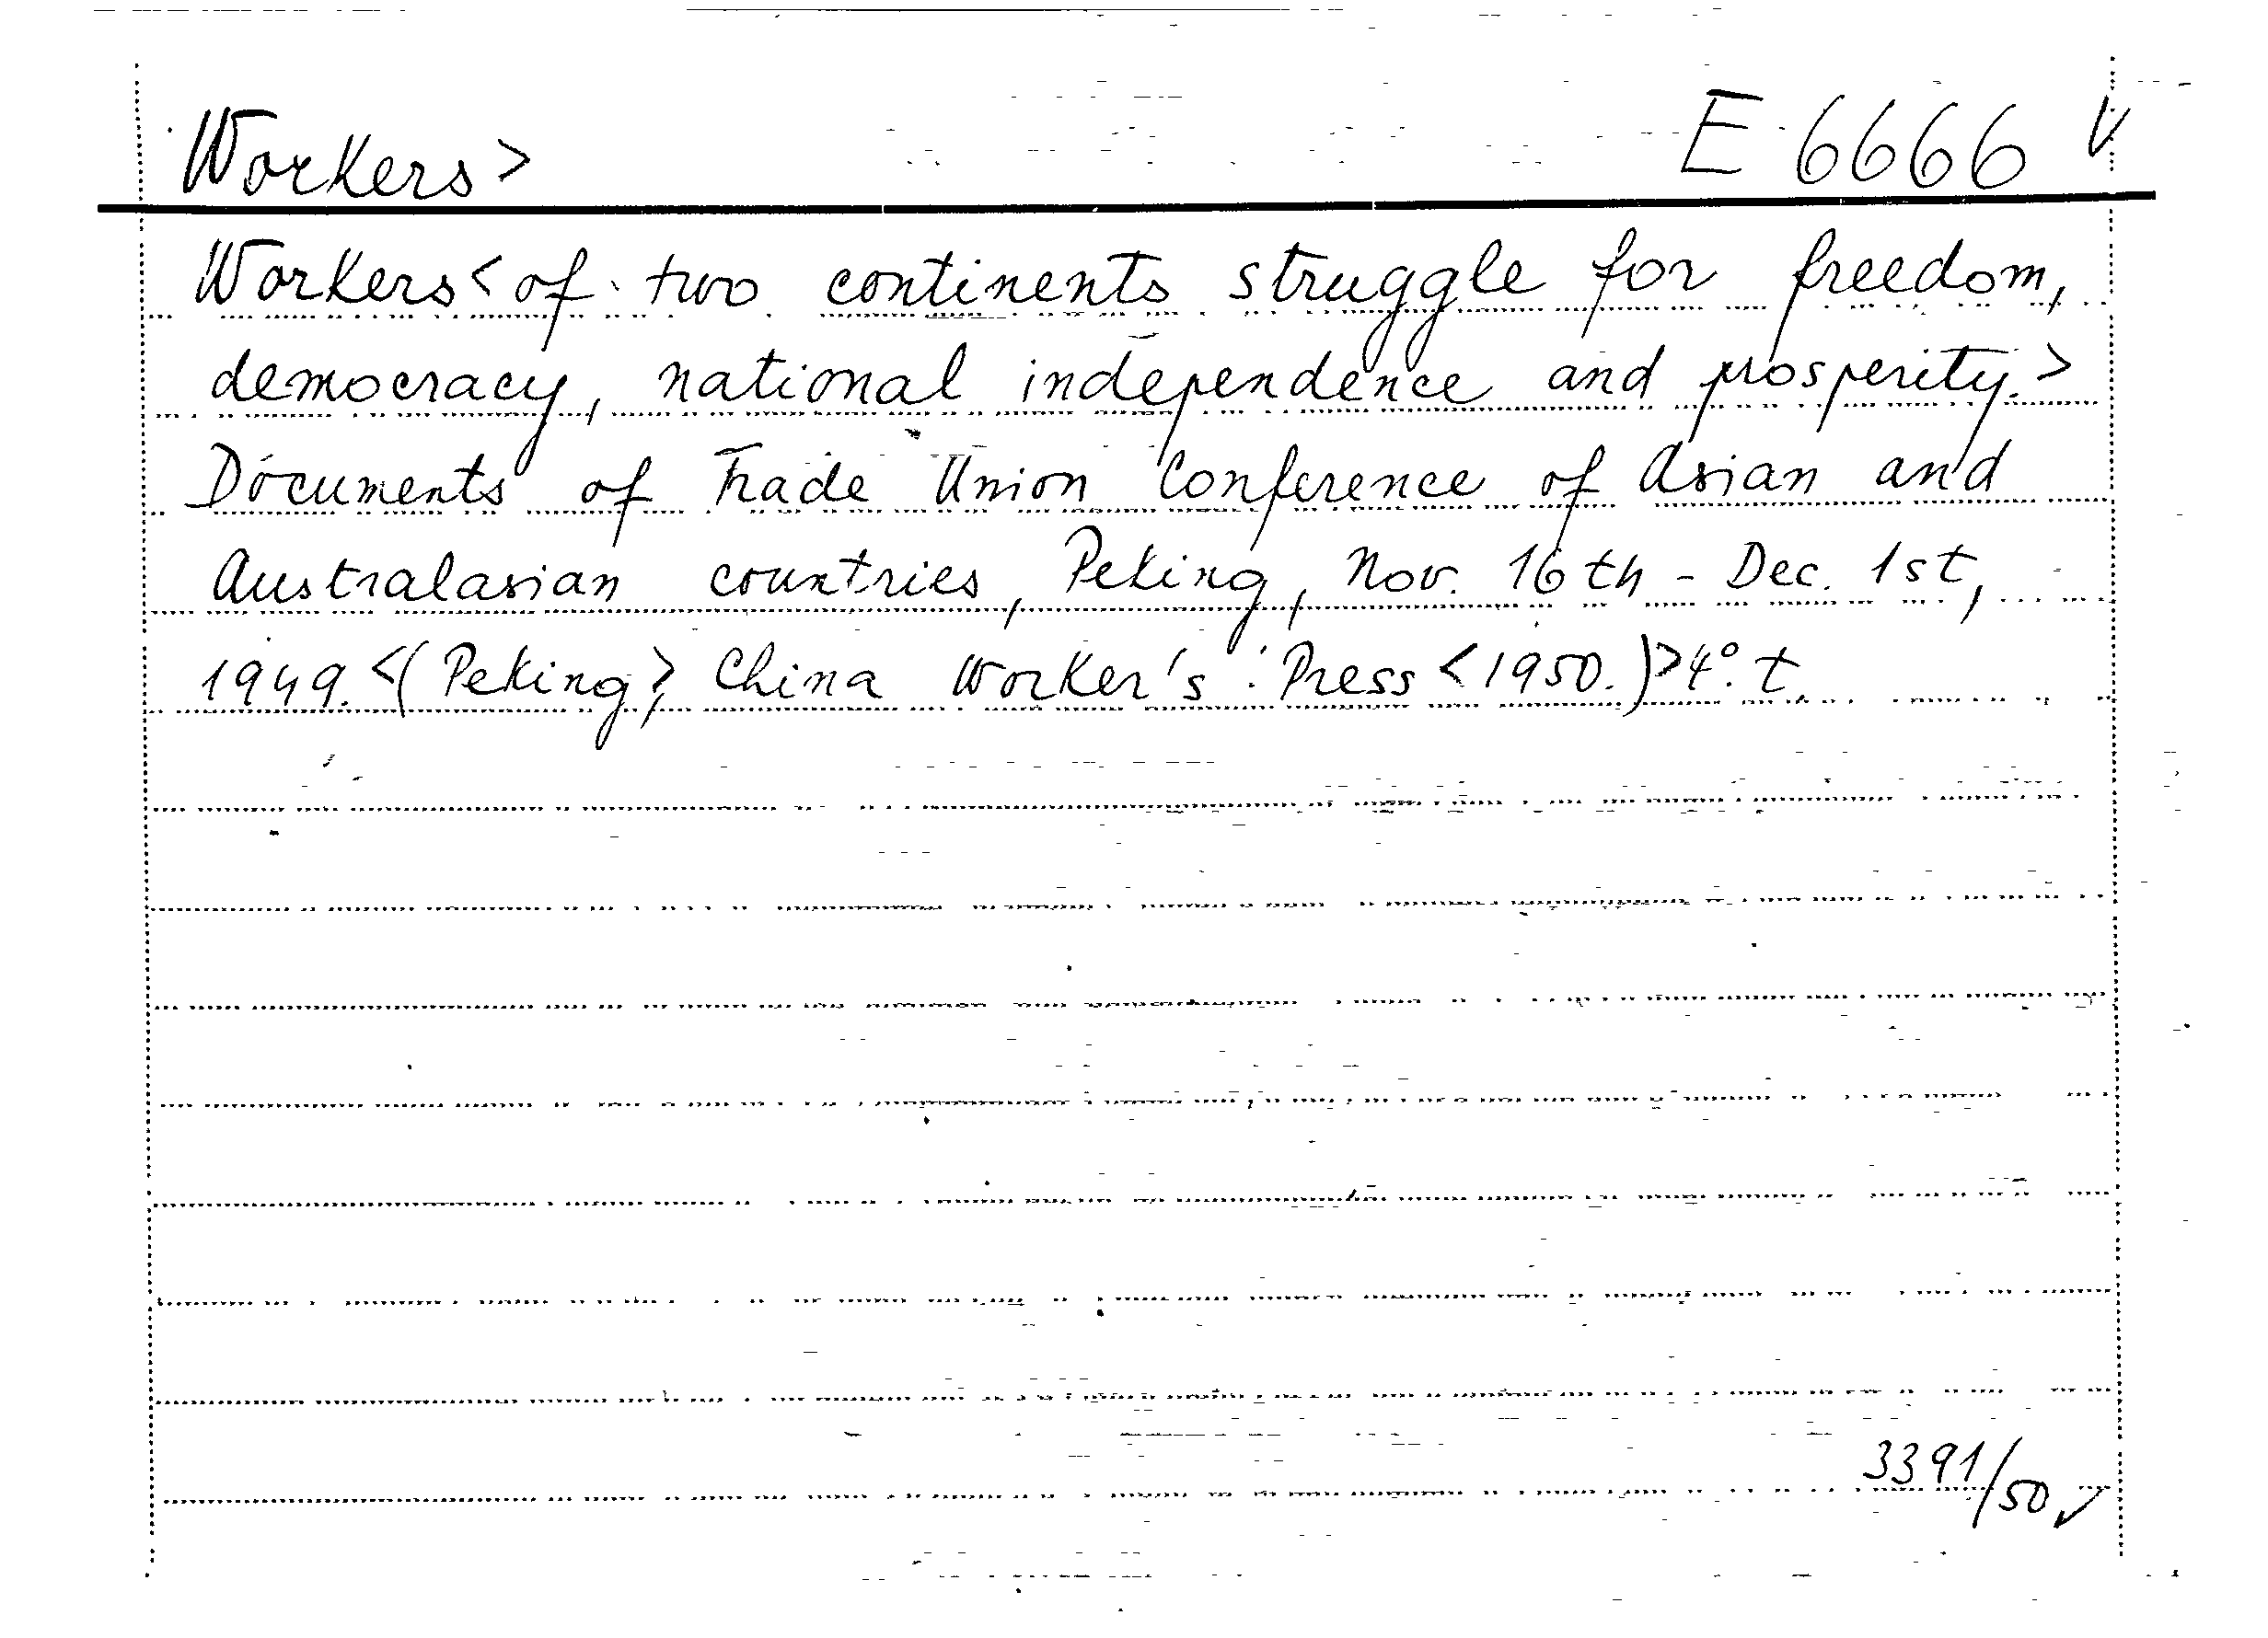 Workers> E 6666 V
Workers< of two continents struggle for freedom,
democracy, national independence and prosperity.>
Documents of Trade Union Conference of Asian and
Australasian countries, Peking, Nov. 16th - Dec. 1st,
1949. <(Peking>, China Worker's Press <1950.)> 4°. t.
3391/50 ✓